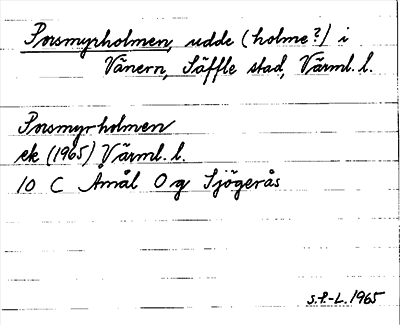 Porsmyrholmen, udde (holme?) i
Vänern, Säffle stad, Värml. l.
Porsmyrholmen
ek (1965) Värml. l.
10 C Åmål O g Sjögerås
s.f.-L. 1965